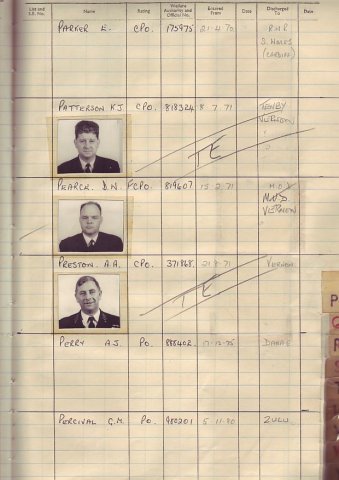 List and S.B. No. Name Rating Welfare Authority and Official No. Entered From Date Discharged To Date
PARKER E. CPO. 175975 21.4.70 RNR
S. WALES
(CARDIFF)
PATTERSON K.J. CPO. 818324 8.7.71 TENBY
VERNON
TE
PEARCE. D.N. FCPO. 819607 15.2.71
VERNON
PRESTON. A.A. CPO. 371868. 71 VERNON
TE
PERRY A.J. PO. 885402. 17-12-75 DANAE
PERCIVAL G.M. PO. 980201 5-11-80 ZULU
P
Q
R
S
T